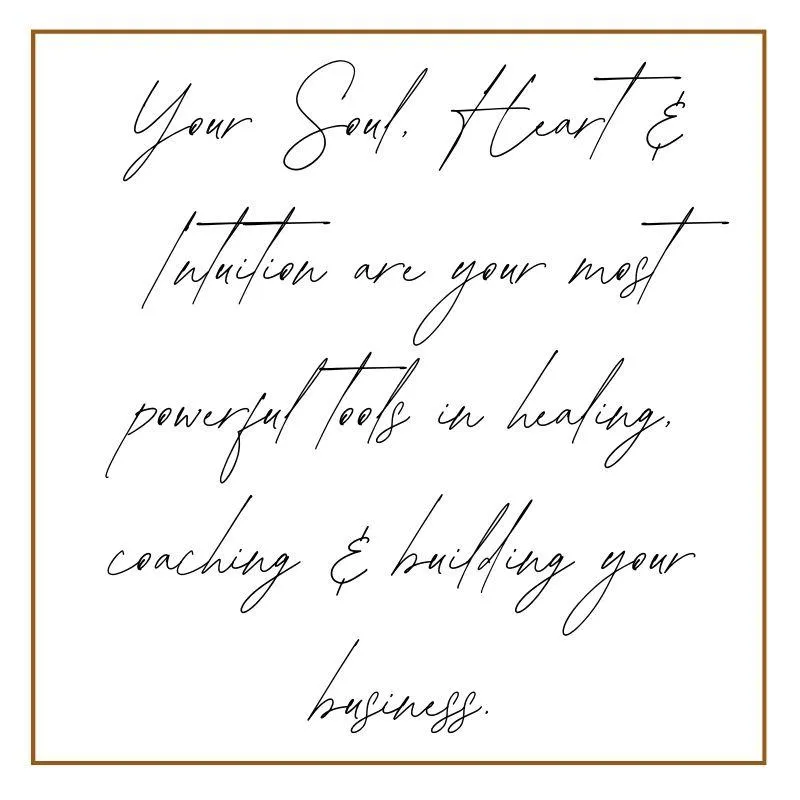 Your Soul, Heart &
Intuition are your most
powerful tools in healing,
coaching & building your
business.